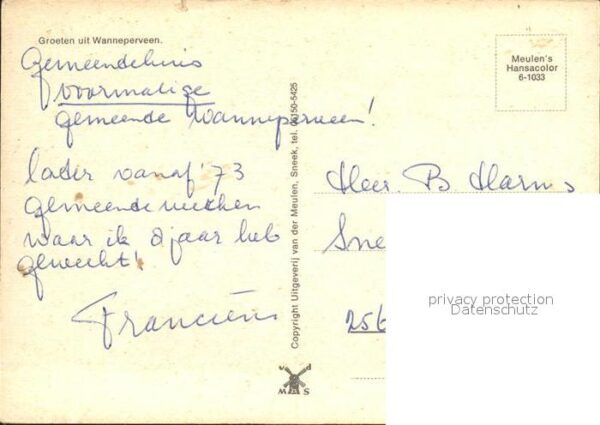 Groeten uit Wanneperveen.
Gemeendehuis
voormalige
gemeende Wanneperveen!
later vanaf '73
gemeende
waar ik 8 jaar heb
gewerkt!
Franciens
Copyright Uitgeverij van der Meulen, Sneek, tel. 05150-5425
Meulen's
Hansacolor
6-1033
Heer. B Harms
Sne
256
privacy protection
Datenschutz
M S